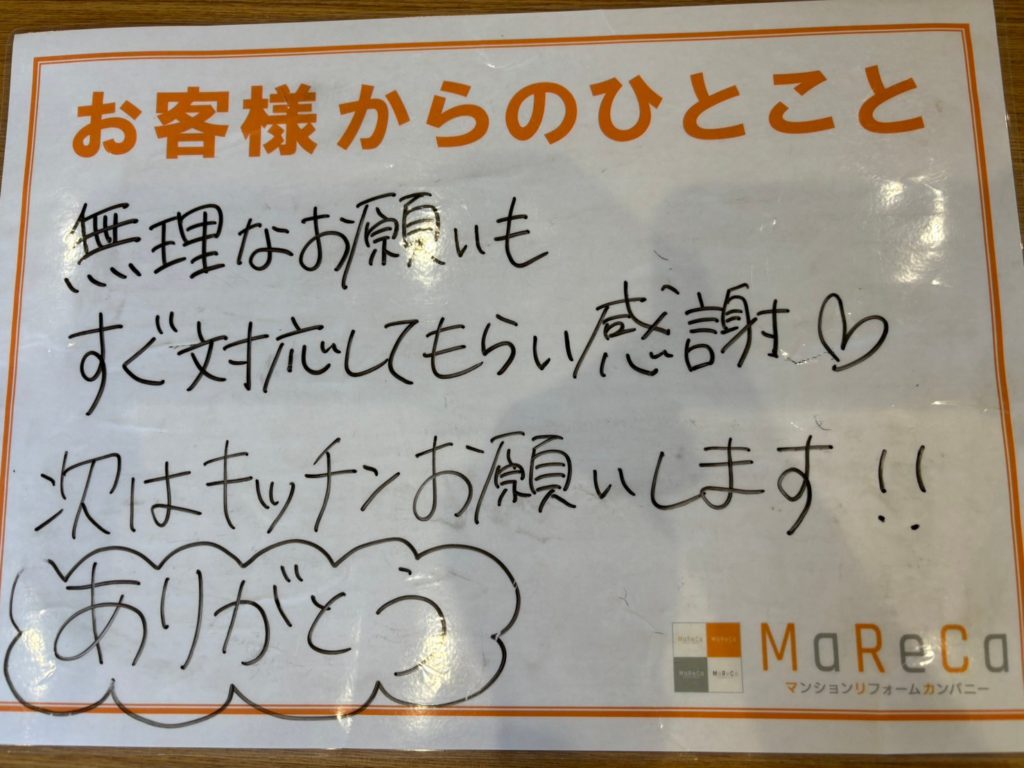 お客様からのひとこと
無理なお願いも
すぐ対応してもらい感謝♡
次はキッチンお願いします!!
ありがとう
MaReCa
マンションリフォームカンパニー